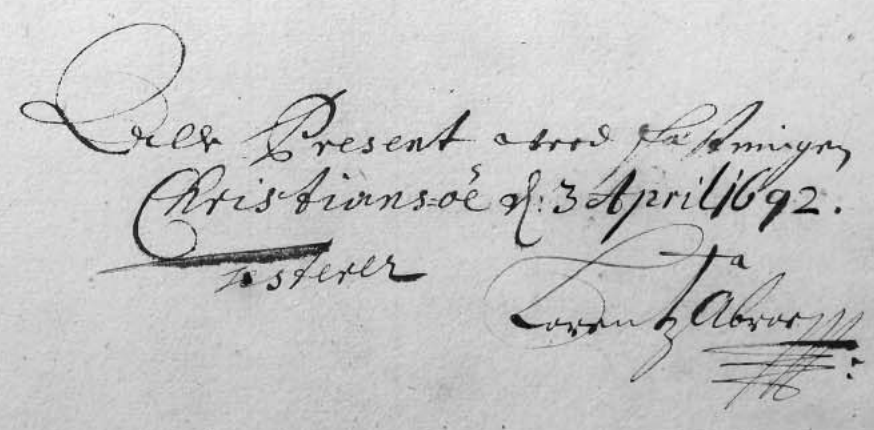 Present wed fæstningen
Christians-öe d: 3 April 1692.
testerer
Lorentz